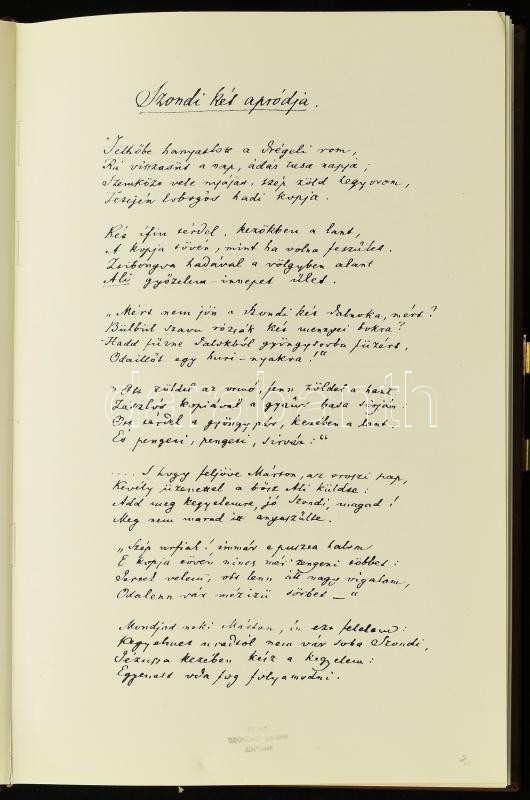 Szondi két apródja.
Felhőbe hanyatlott a drégeli rom,
Rá visszasüt a nap, ádáz tusa napja;
Szemközt vele nyájas, szép zöld hegyorom,
Tetején lobogós hadi kopja.
Két ifiu térdel, kezökben a lant,
A kopja tövén, mint ha volna feszület.
Zsibongva hadával a völgyben alant
Ali győzelem-ünnepet ület.
„Mért nem jön a Szondi két dalnoka, mért?
Bülbül szavu rózsák két mennyei bokra?
Hadd fűzne dalokból gyöngysorba füzért,
Odaillőt egy huri-nyakra!"
„Ott zöldel az ormó, fenn zöldel a hant
Zászlós kopiával a gyaur basa sírján:
Ott térdel a gyöngypár, kezében a lant,
És pengeti, pengeti, sírván:"
.... S hogy feljöve Márton, az oroszi pap,
Kevély üzenettel a bősz Ali küldte:
Add meg kegyelemre, jó Szondi, magad!
Meg nem marad itt anyaszülte.
„Szép urfiak! immár e puszta halom
E kopja tövén nincs mér' zengeni többet:
Jertek velem, ott lenn áll nagy vigalom,
Odalenn vár mézizü sörbet –"
Mondjad neki Márton, im ezt felelem:
Kegyelmet uradtól nem vár soha Szondi,
Jézusa kezében kész a kegyelem:
Egyenest oda fog folyamodni.
darabanth
2